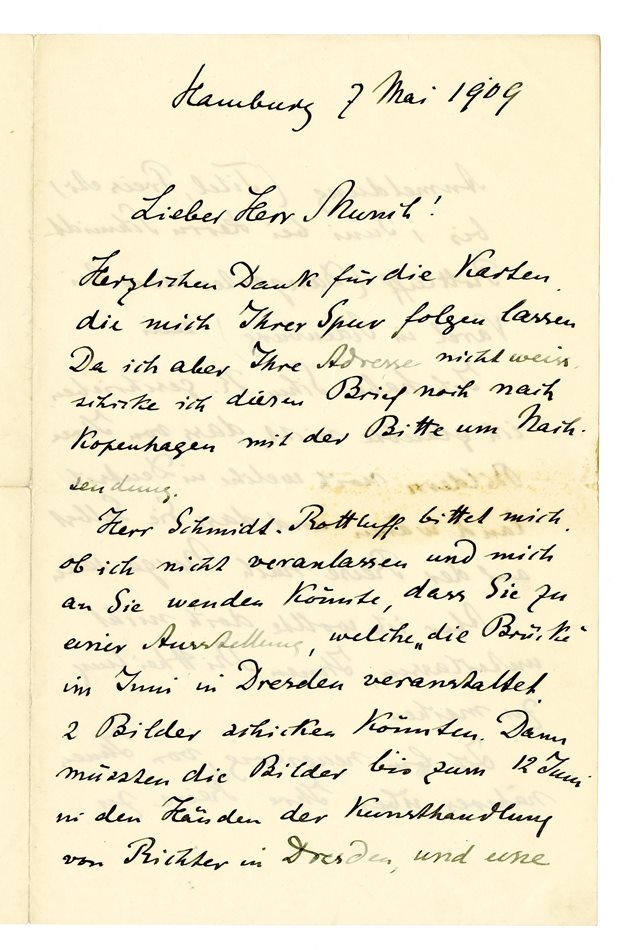 Hamburg 7 Mai 1909
Lieber Herr Munch!
Herzlichen Dank für die Karten,
die mich Ihrer Spur folgen lassen
Da ich aber Ihre Adresse nicht weiss,
schicke ich diesen Brief noch nach
Kopenhagen mit der Bitte um Nach-
sendung.
Herr Schmidt-Rottluff bittet mich,
ob ich nicht veranlassen und mich
an Sie wenden könnte, dass Sie zu
einer Ausstellung, welche „die Brücke“
im Juni in Dresden veranstaltet,
2 Bilder schicken könnten. Dann
müssten die Bilder bis zum 12 Juni
in den Händen der Kunsthandlung
von Richter in Dresden, und eine